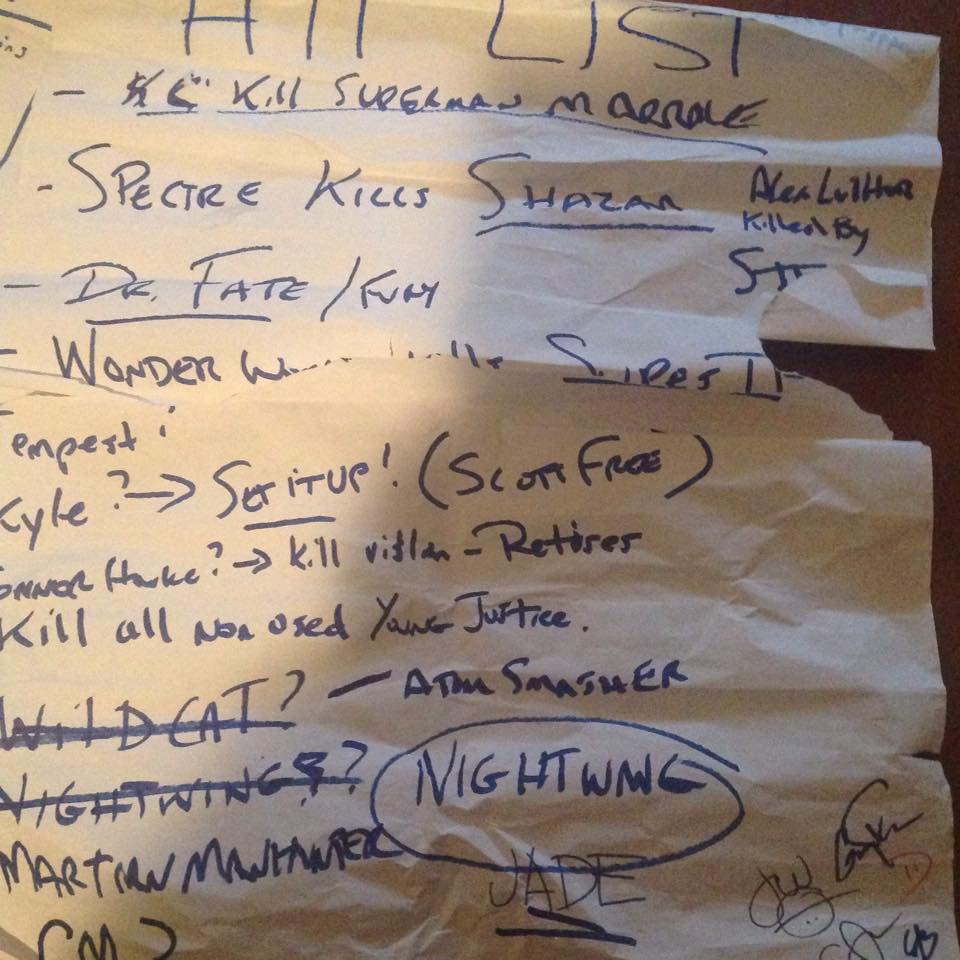 HIT LIST
- Kill SUPERMAN MARRIAGE
- SPECTRE KILLS SHAZAM
Alex Luthor
Killed By
- DR. FATE / FURY
- WONDER
Tempest
Kyle ? → SET IT UP! (SCOTT FREE)
Connor Hawke? → Kill villan - Retires
Kill all non used Young Justice.
WILDCAT? - ATOM SMASHER
NIGHTWING? ? NIGHTWING
MARTIAN MANHUNTER
JADE